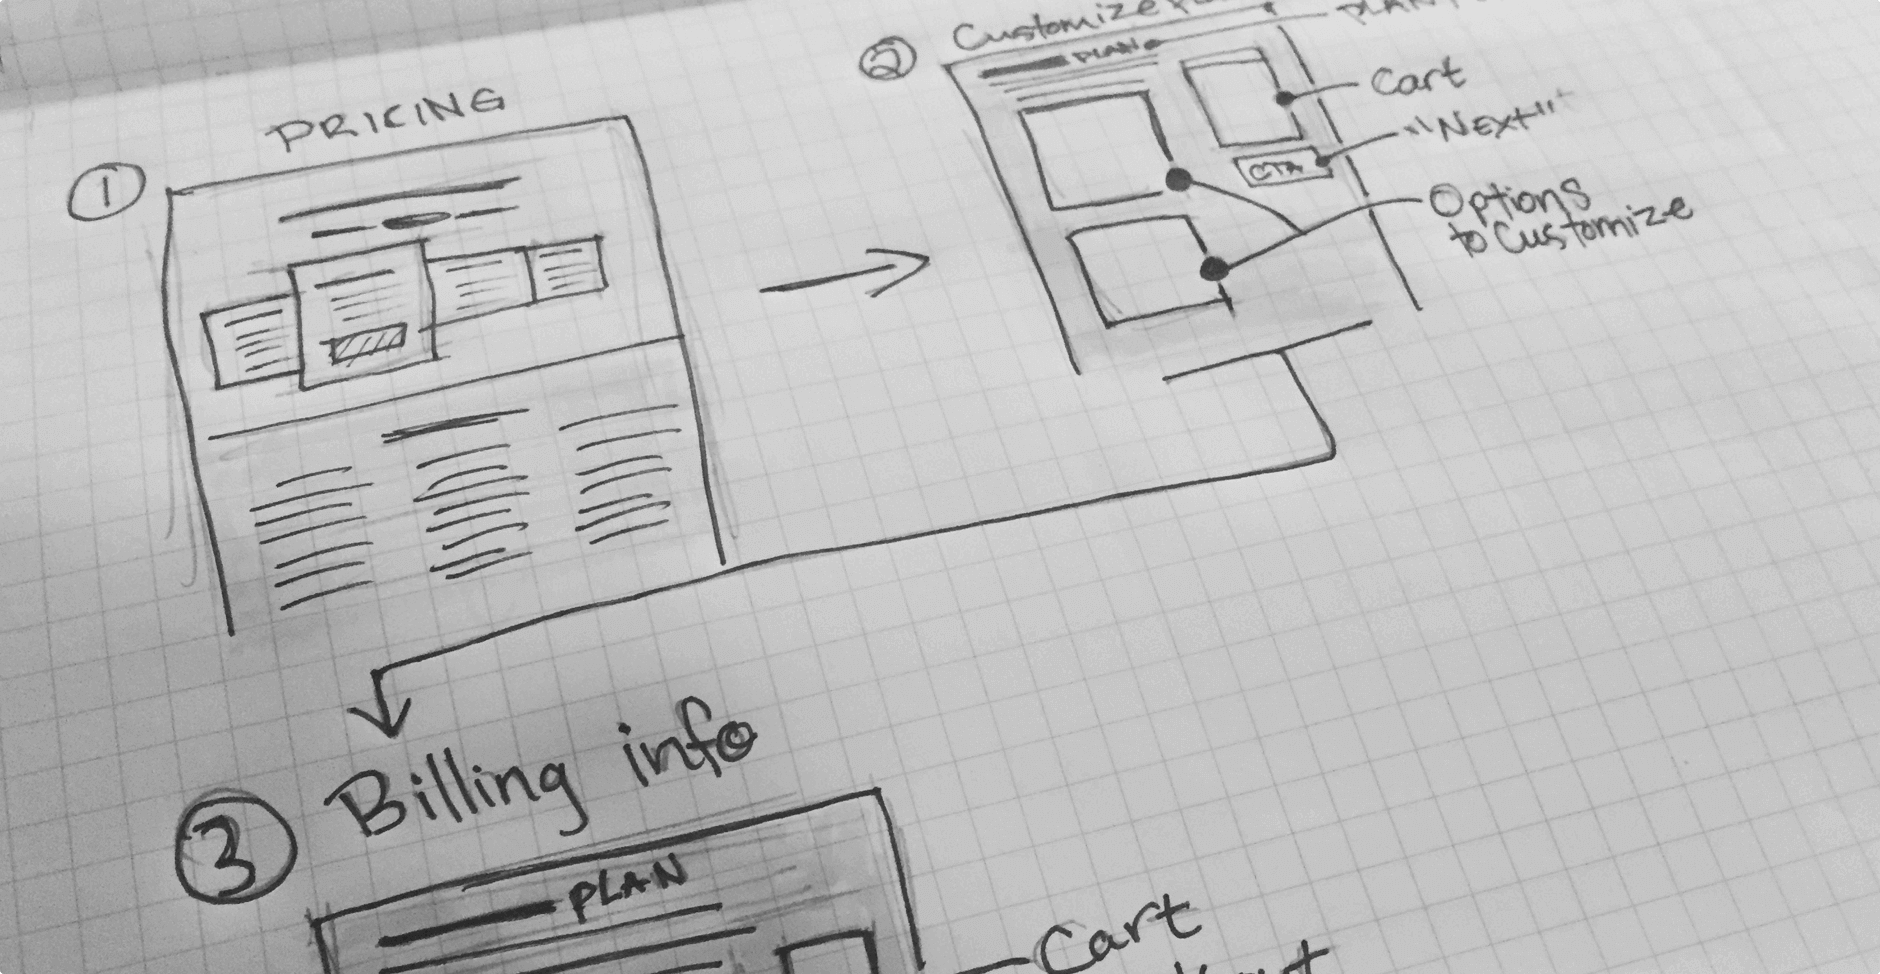 ① PRICING
② Customize
PLAN
Cart
"NEXT"
CTA
Options
to Customize
③ Billing info
PLAN
Cart